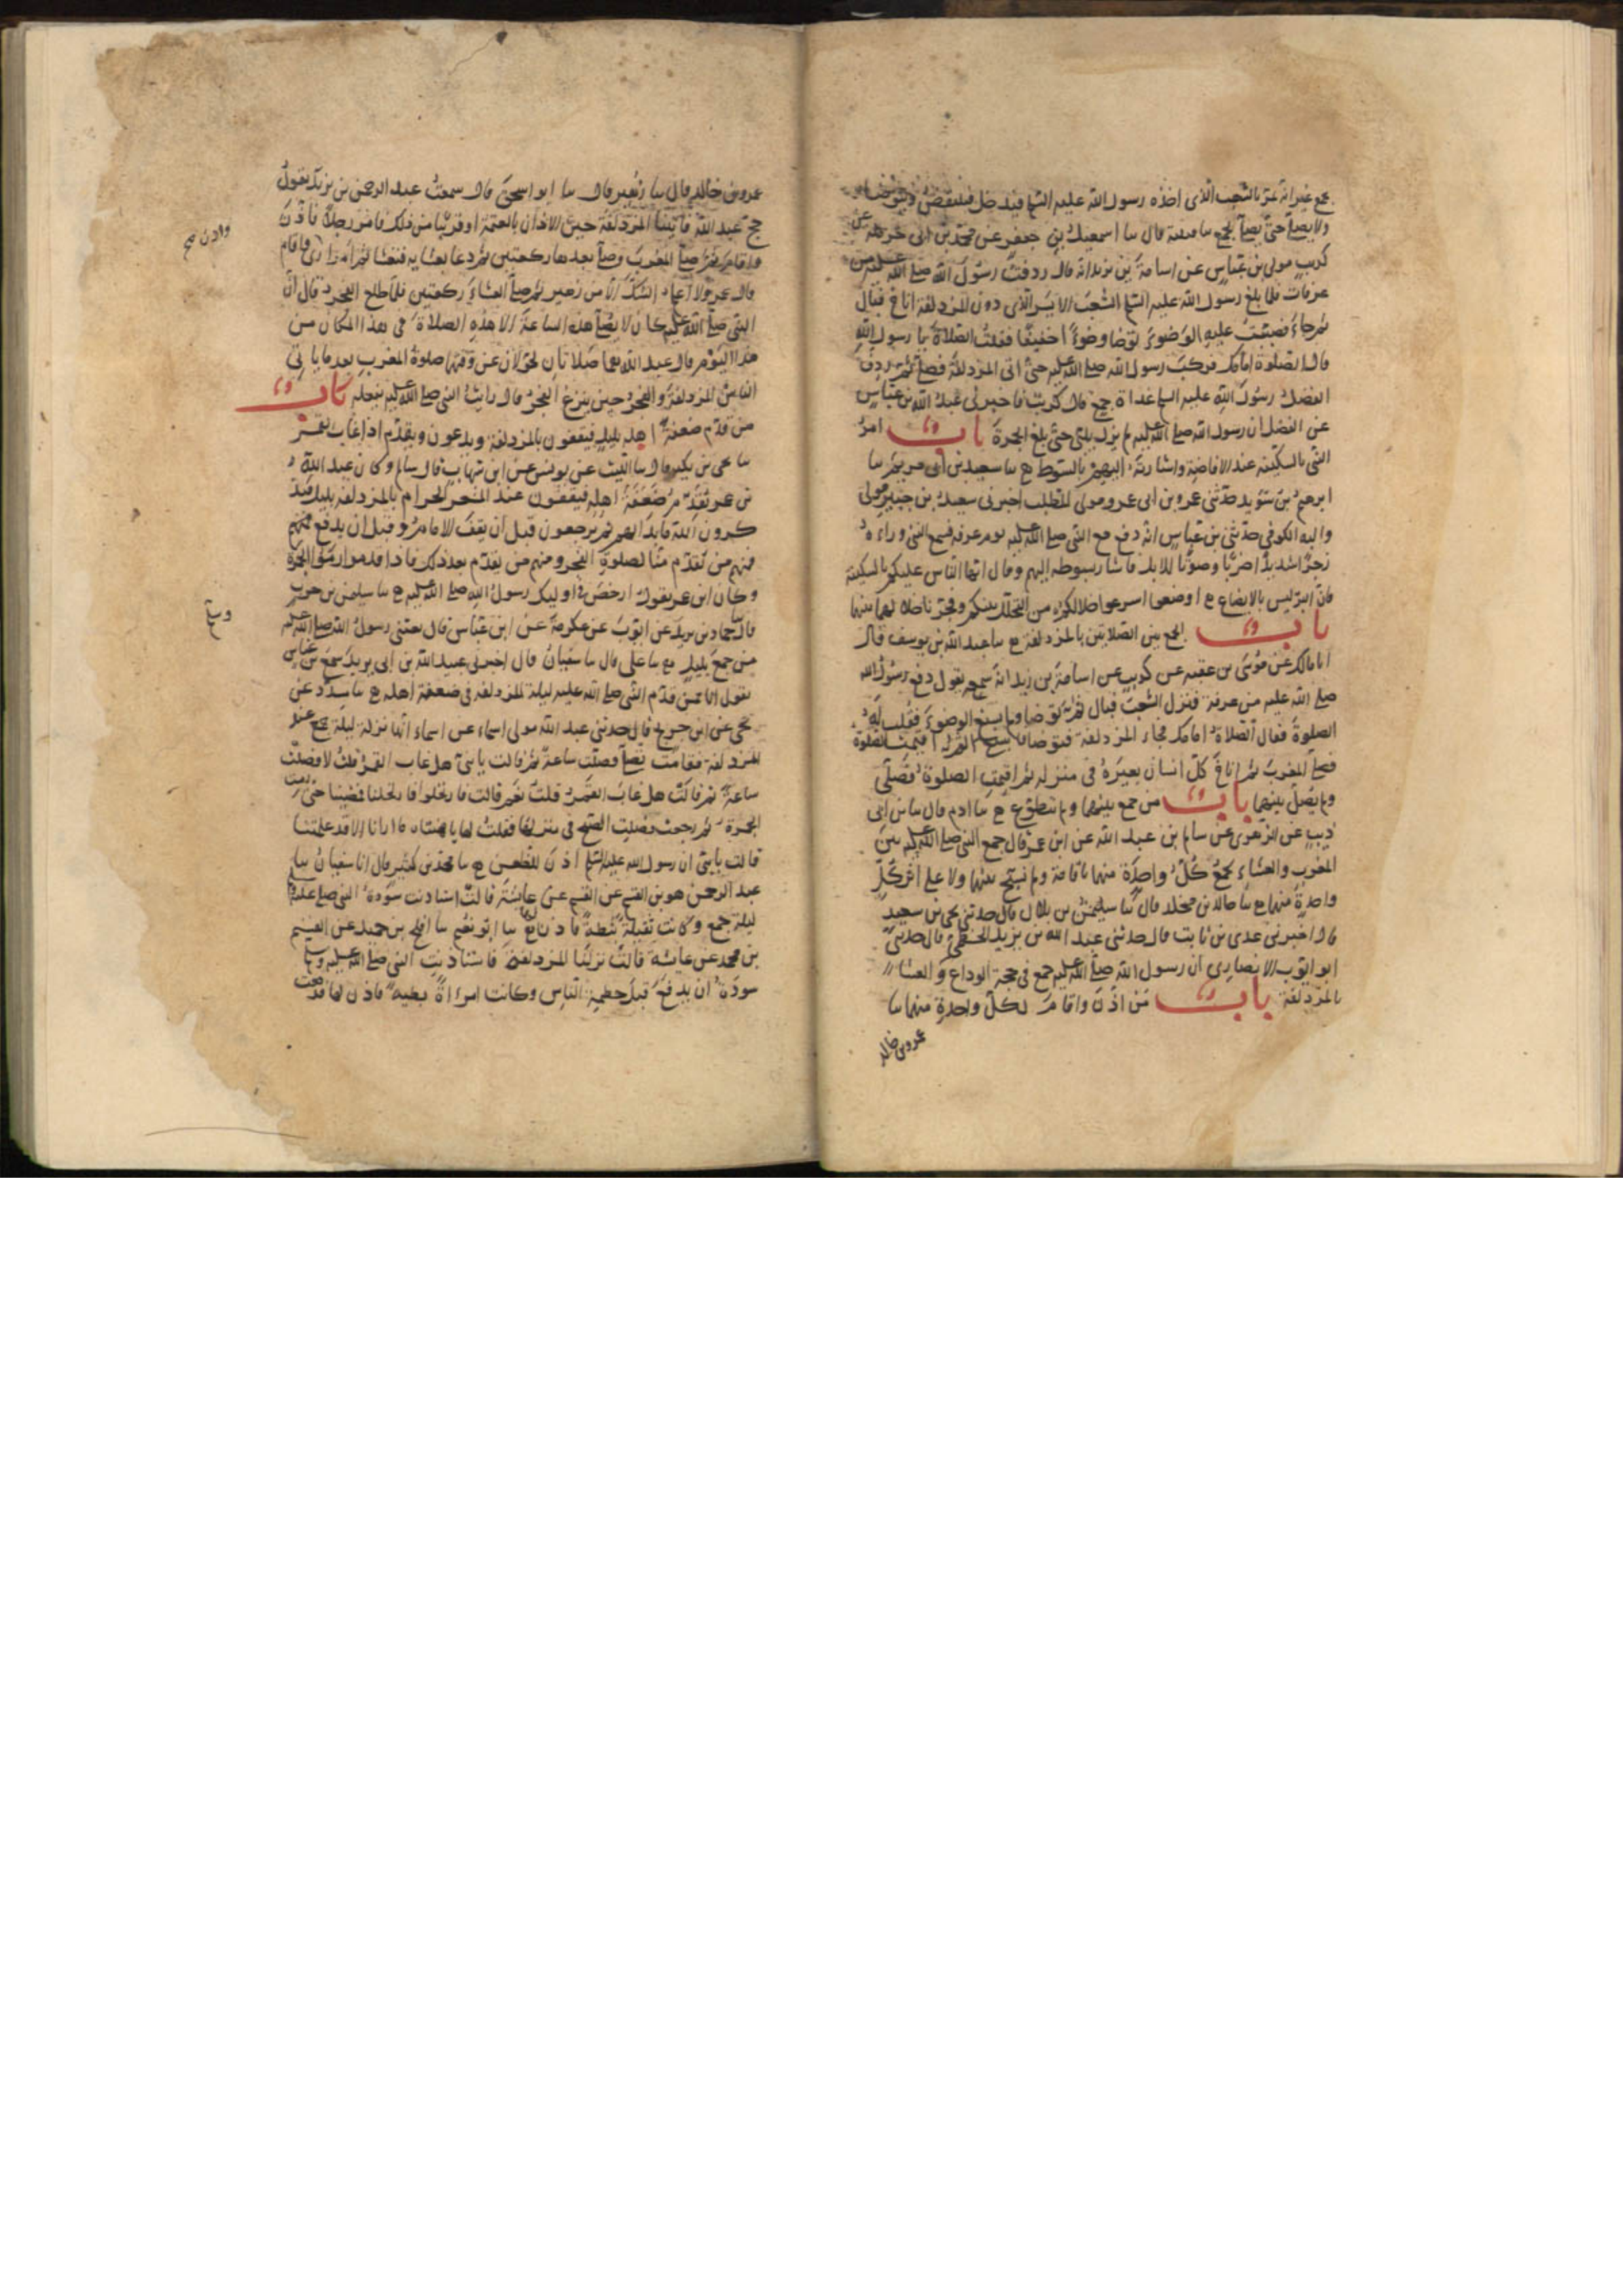 بجمع غير انه يمر بالشعب الذى اخذه رسول الله عليه السلم فيدخل فينتفض ويتوضا
ولا يصلى حتى يصلى بجمع سا قتيبة قال سا اسمعيل بن جعفر عن محمد بن ابى حرملة عن
كريب مولى بن عباس عن اسامة بن زيد انه قال ردفت رسول الله صلى الله عليه من
عرفات فلما بلغ رسول الله عليه السلم الشعب الايسر الذى دون المزدلفة اناخ فبال
ثم جاء فصببت عليه الوضوء توضا وضوءا خفيفا فقلت الصلاة يا رسول الله
قال الصلوة امامك فركب رسول الله صلى الله عليه حتى اتى المزدلفة فصلى ثم ردف
الفضل رسول الله عليه السلم غداة جمع قال كريب فاخبرنى عبد الله بن عباس
عن الفضل ان رسول الله صلى الله عليه لم يزل يلبى حتى بلغ الجمرة باب امر
النبى بالسكينة عند الافاضة واشارته اليهم بالسوط ح سا سعيد بن ابى مريم سا
ابرهيم بن سويد حدثنى عمرو بن ابى عمرو مولى المطلب اخبرنى سعيد بن جبير مولى
والبة الكوفى حدثنى بن عباس انه دفع مع النبى صلى الله عليه يوم عرفة فسمع النبى وراءه
زجرا شديدا وضربا وصوتا للابل فاشار بسوطه اليهم وقال ايها الناس عليكم بالسكينة
فان البر ليس بالايضاع ح اوضعوا اسرعوا خلالكم من التخلل بينكم وفجرنا خلالهما بينهما
باب الجمع بين الصلاتين بالمزدلفة ح سا عبد الله بن يوسف قال
انا مالك عن موسى بن عقبه عن كريب عن اسامة بن زيد انه سمعه يقول دفع رسول الله
صلى الله عليه من عرفة فنزل الشعب فبال ثم توضا ولم يسبغ الوضوء فقلت له
الصلوة فقال الصلاة امامك فجاء المزدلفة فتوضا فاسبغ ثم اقيمت الصلوة
فصلى المغرب ثم اناخ كل انسان بعيره فى منزله ثم اقيمت الصلوة فصلى
ولم يصل بينهما باب من جمع بينهما ولم يتطوع ح سا ادم قال سا بن ابى
ذيب عن الزهرى عن سالم بن عبد الله عن ابن عمر قال جمع النبى صلى الله عليه بين
المغرب والعشاء بجمع كل واحدة منهما باقامة ولم يسبح بينهما ولا على اثر كل
واحدة منهما ح سا خالد بن مخلد قال سا سليمن بن بلال قال حدثنى يحيى بن سعيد
قال اخبرنى عدى بن ثابت قال حدثنى عبد الله بن يزيد الخطمى قال حدثنى
ابو ايوب الانصارى ان رسول الله صلى الله عليه جمع فى حجة الوداع والعشاء
بالمزدلفة باب من اذن واقام لكل واحدة منهما سا
عمرو بن خالد
عمرو بن خالد قال سا زهير قال سا ابو اسحق قال سمعت عبد الرحمن بن يزيد يقول
حج عبد الله فاتينا المزدلفة حين الاذان بالعتمة او قريبا من ذلك فامر رجلا فاذن
واقام ثم صلى المغرب وصلى بعدها ركعتين ثم دعا بعشايه فتعشا ثم امر ارى واقام
واذن صح
قال عمرو لا اعلم الشك الا من زهير ثم صلى العشاء ركعتين فلما طلع الفجر قال ان
النبى صلى الله عليه كان لا يصلى هذه الساعة الا هذه الصلاة فى هذا المكان من
هذا اليوم قال عبد الله هما صلاتان تحولان عن وقتها صلوة المغرب بعد ما ياتى
الناس المزدلفة والفجر حين يبزغ الفجر قال رايت النبى صلى الله عليه يفعله باب
من قدم ضعفة اهله بليل فيقفون بالمزدلفة ويدعون ويقدم اذا غاب القمر
سا يحيى بن بكير قال سا الليث عن يونس عن ابن شهاب قال سالم وكان عبد الله
بن عمر يقدم ضعفة اهله فيقفون عند المشعر الحرام بالمزدلفة بليل فيذ
كرون الله ما بدا لهم ثم يرجعون قبل ان يقف الامام وقبل ان يدفع فمنهم
فمنهم من يقدم منا لصلوة الفجر ومنهم من يقدم بعد ذلك فاذا قدموا رموا الجمرة
وكان ابن عمر يقول ارخص فى اوليك رسول الله صلى الله عليه ح سا سليمن بن حرب
قال حماد بن زيد عن ايوب عن عكرمة عن ابن عباس قال بعثنى رسول الله صلى الله عليه
من جمع بليل ح سا على قال سا سفيان قال اخبرنى عبيد الله بن ابى يزيد سمع بن عباس
يقول انا ممن قدم النبى صلى الله عليه ليلة المزدلفة فى ضعفة اهله ح سا مسدد عن
يحيى عن ابن جريج قال حدثنى عبد الله مولى اسماء عن اسماء انها نزلة ليلة جمع عند
المزدلفة فقامت تصلى فصلت ساعة ثم قالت يا بنى هل غاب القمر قلت لا فصلت
ساعة ثم قالت هل غاب القمر قلت نعم قالت فارتحلوا فارتحلنا فمضينا حتى رمت
الجمرة ثم رجعت فصليت الصبح فى منزلها فقلت لها يا هنتاه ما ارانا الا قد غلسنا
قالت يا بنى ان رسول الله عليه السلم اذن للظعن ح سا محمد بن كثير قال انا سفيان سا
عبد الرحمن هو بن القسم عن القسم عن عايشة قالت استاذنت سودة النبى صلى الله عليه
ليلة جمع وكانت ثقيلة ثبطة فاذن لها سا ابو نعيم سا افلح بن حميد عن القسم
بن محمد عن عايشة قالت نزلنا المزدلفة فاستاذنت النبى صلى الله عليه وسلم
سودة ان يدفع قبل حطمة الناس وكانت امراة بطيه فاذن لها فدفعت